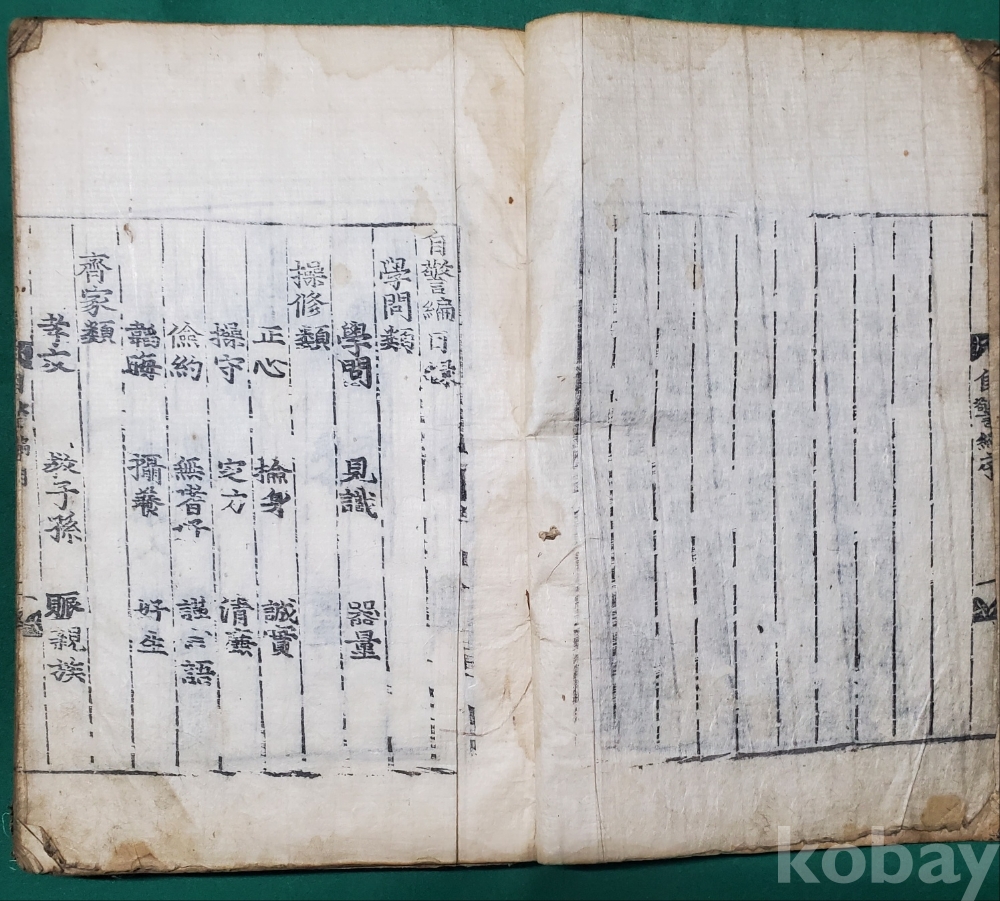 自警編序
一
自警編目錄
學問類
學問 見識 器量
操修類
正心 撿身 誠實
操守 定力 清廉
儉約 無嗜好 謹言語
韜晦 攝養 好生
齊家類
孝友 教子孫 賑親族
kobay